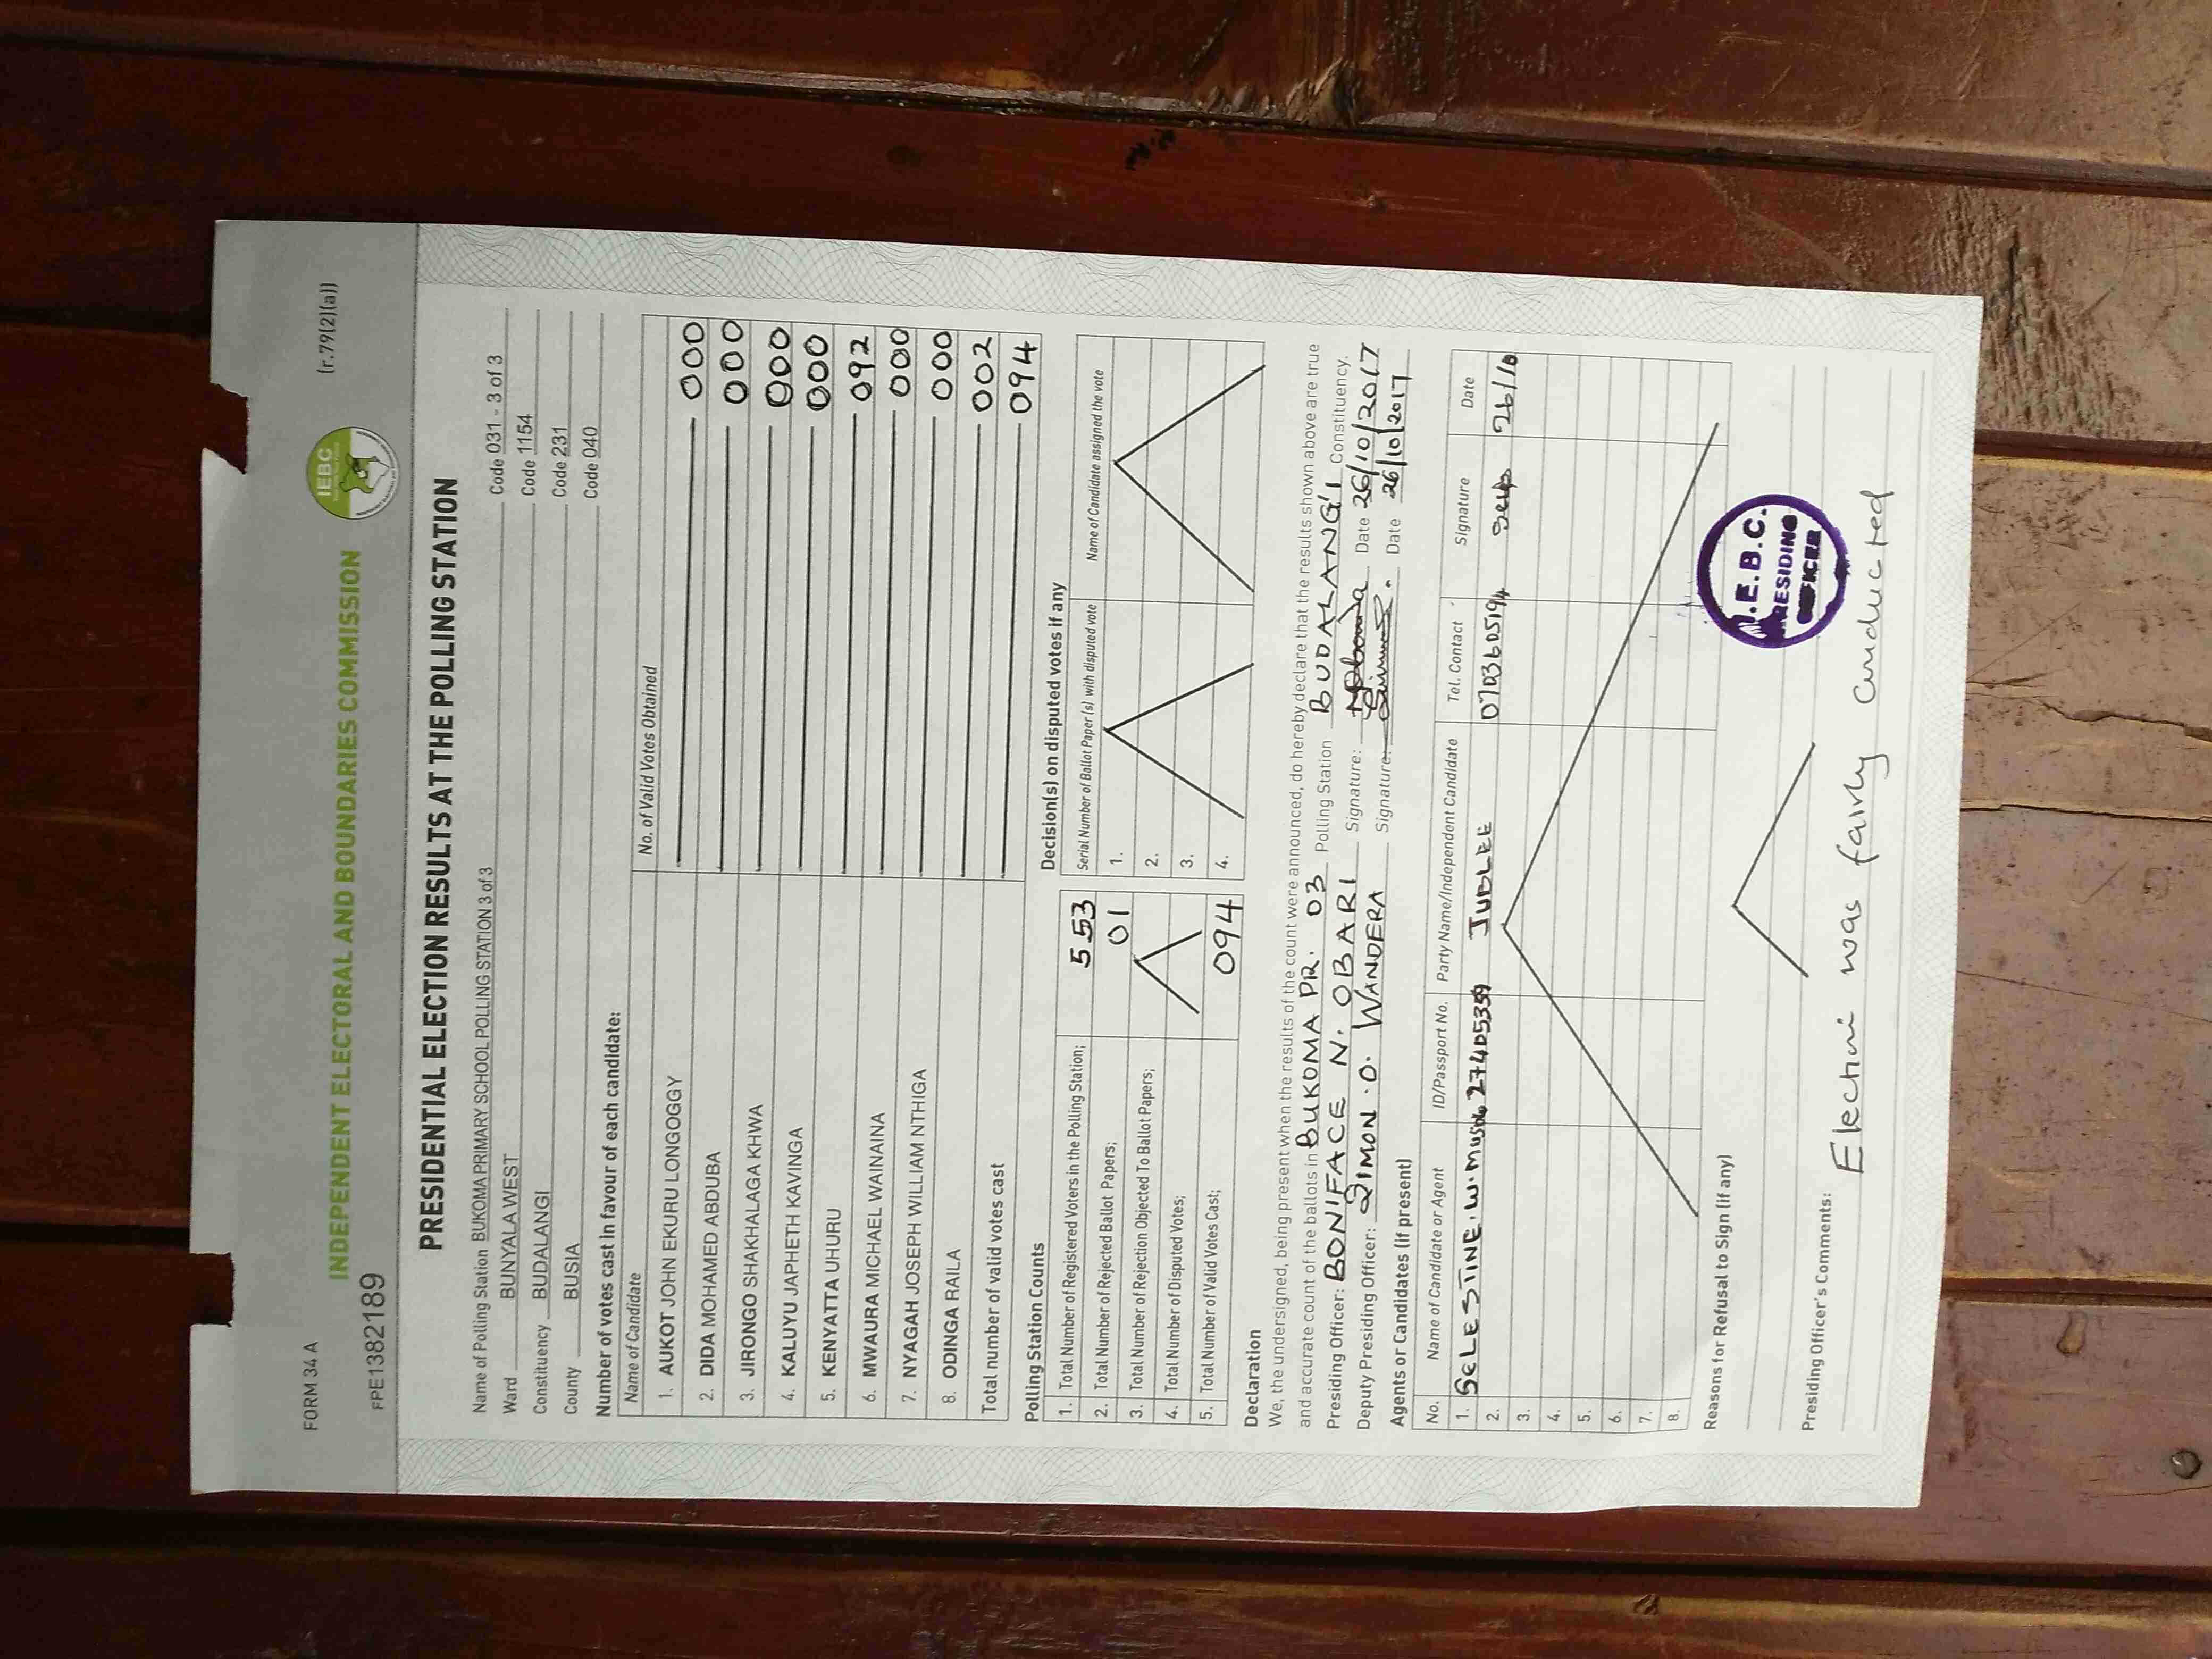 FORM 34 A
(r.79(2)(a))
IEBC
INDEPENDENT ELECTORAL AND BOUNDARIES COMMISSION
FPE1382189
PRESIDENTIAL ELECTION RESULTS AT THE POLLING STATION
Name of Polling Station BUKOMA PRIMARY SCHOOL POLLING STATION 3 of 3 Code 031 - 3 of 3
Ward BUNYALA WEST Code 1154
Constituency BUDALANGI Code 231
County BUSIA Code 040
Number of votes cast in favour of each candidate:
Name of Candidate No. of Valid Votes Obtained
1. AUKOT JOHN EKURU LONGOGGY 000
2. DIDA MOHAMED ABDUBA 000
3. JIRONGO SHAKHALAGA KHWA 000
4. KALUYU JAPHETH KAVINGA 000
5. KENYATTA UHURU 092
6. MWAURA MICHAEL WAINAINA 000
7. NYAGAH JOSEPH WILLIAM NTHIGA 000
8. ODINGA RAILA 002
Total number of valid votes cast 094
Polling Station Counts
1. Total Number of Registered Voters in the Polling Station; 553
2. Total Number of Rejected Ballot Papers; 01
3. Total Number of Rejection Objected To Ballot Papers;
4. Total Number of Disputed Votes;
5. Total Number of Valid Votes Cast; 094
Decision(s) on disputed votes if any
Serial Number of Ballot Paper (s) with disputed vote Name of Candidate assigned the vote
1.
2.
3.
4.
Declaration
We, the undersigned, being present when the results of the count were announced, do hereby declare that the results shown above are true
and accurate count of the ballots in BUKOMA PR. 03 Polling Station BUDALANG'I Constituency.
Presiding Officer: BONIFACE N. OBARI Signature: Date 26/10/2017
Deputy Presiding Officer: SIMON .O. WANDERA Signature: Date 26/10/2017
Agents or Candidates (if present)
No. Name of Candidate or Agent ID/Passport No. Party Name/Independent Candidate Tel. Contact Signature Date
1. SELESTINE .W. 27405359 JUBLEE 0703605194 26/10
2.
3.
4.
5.
6.
7.
8.
Reasons for Refusal to Sign (if any)
I.E.B.C.
PRESIDING
OFFICER
Presiding Officer's Comments:
Election was fairly conducted